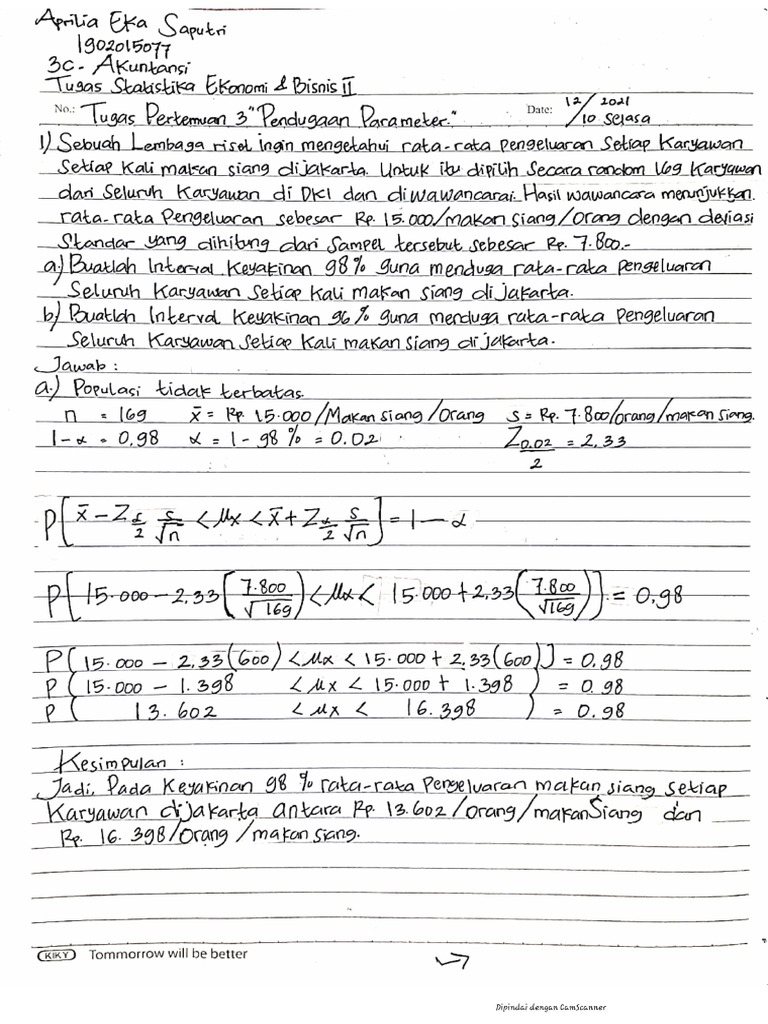 Aprilia Eka Saputri
1902015077
3C - Akuntansi
Tugas Statistika Ekonomi & Bisnis II
No.: Tugas Pertemuan 3 "Pendugaan Parameter." Date: 12/2021/10 Selasa
1) Sebuah Lembaga riset ingin mengetahui rata-rata pengeluaran Setiap Karyawan
Setiap Kali makan siang di jakarta. Untuk itu dipilih Secara random 169 Karyawan
dari Seluruh Karyawan di DKI dan diwawancarai. Hasil wawancara menunjukkan
rata-rata Pengeluaran sebesar Rp. 15.000/makan siang/orang dengan deviasi
Standar yang dihitung dari Sampel tersebut sebesar Rp. 7.800.-
a.) Buatlah Interval Keyakinan 98% guna menduga rata-rata pengeluaran
Seluruh Karyawan Setiap Kali makan siang di jakarta.
b) Buatlah Interval Keyakinan 96% guna menduga rata-rata Pengeluaran
Seluruh Karyawan Setiap Kali makan siang di jakarta.
Jawab :
a.) Populasi tidak terbatas.
n = 169 x̄ = Rp. 15.000/Makan siang/Orang s = Rp. 7.800/orang/makan siang.
1-α = 0,98 α = 1 - 98% = 0.02 Z 0.02/2 = 2,33
P[x̄ - Z α/2 s/√n < μx < x̄ + Z α/2 s/√n] = 1 - α
P[15.000 - 2,33(7.800/√169) < μx < 15.000 + 2,33(7.800/√169)] = 0,98
P[15.000 - 2,33(600) < μx < 15.000 + 2,33(600)] = 0.98
P(15.000 - 1.398 < μx < 15.000 + 1.398) = 0.98
P(13.602 < μx < 16.398) = 0.98
Kesimpulan :
Jadi, Pada Keyakinan 98% rata-rata Pengeluaran makan siang setiap
Karyawan di jakarta antara Rp. 13.602/orang/makan Siang dan
Rp. 16.398/Orang/makan siang.
KIKY Tommorrow will be better
Dipindai dengan CamScanner